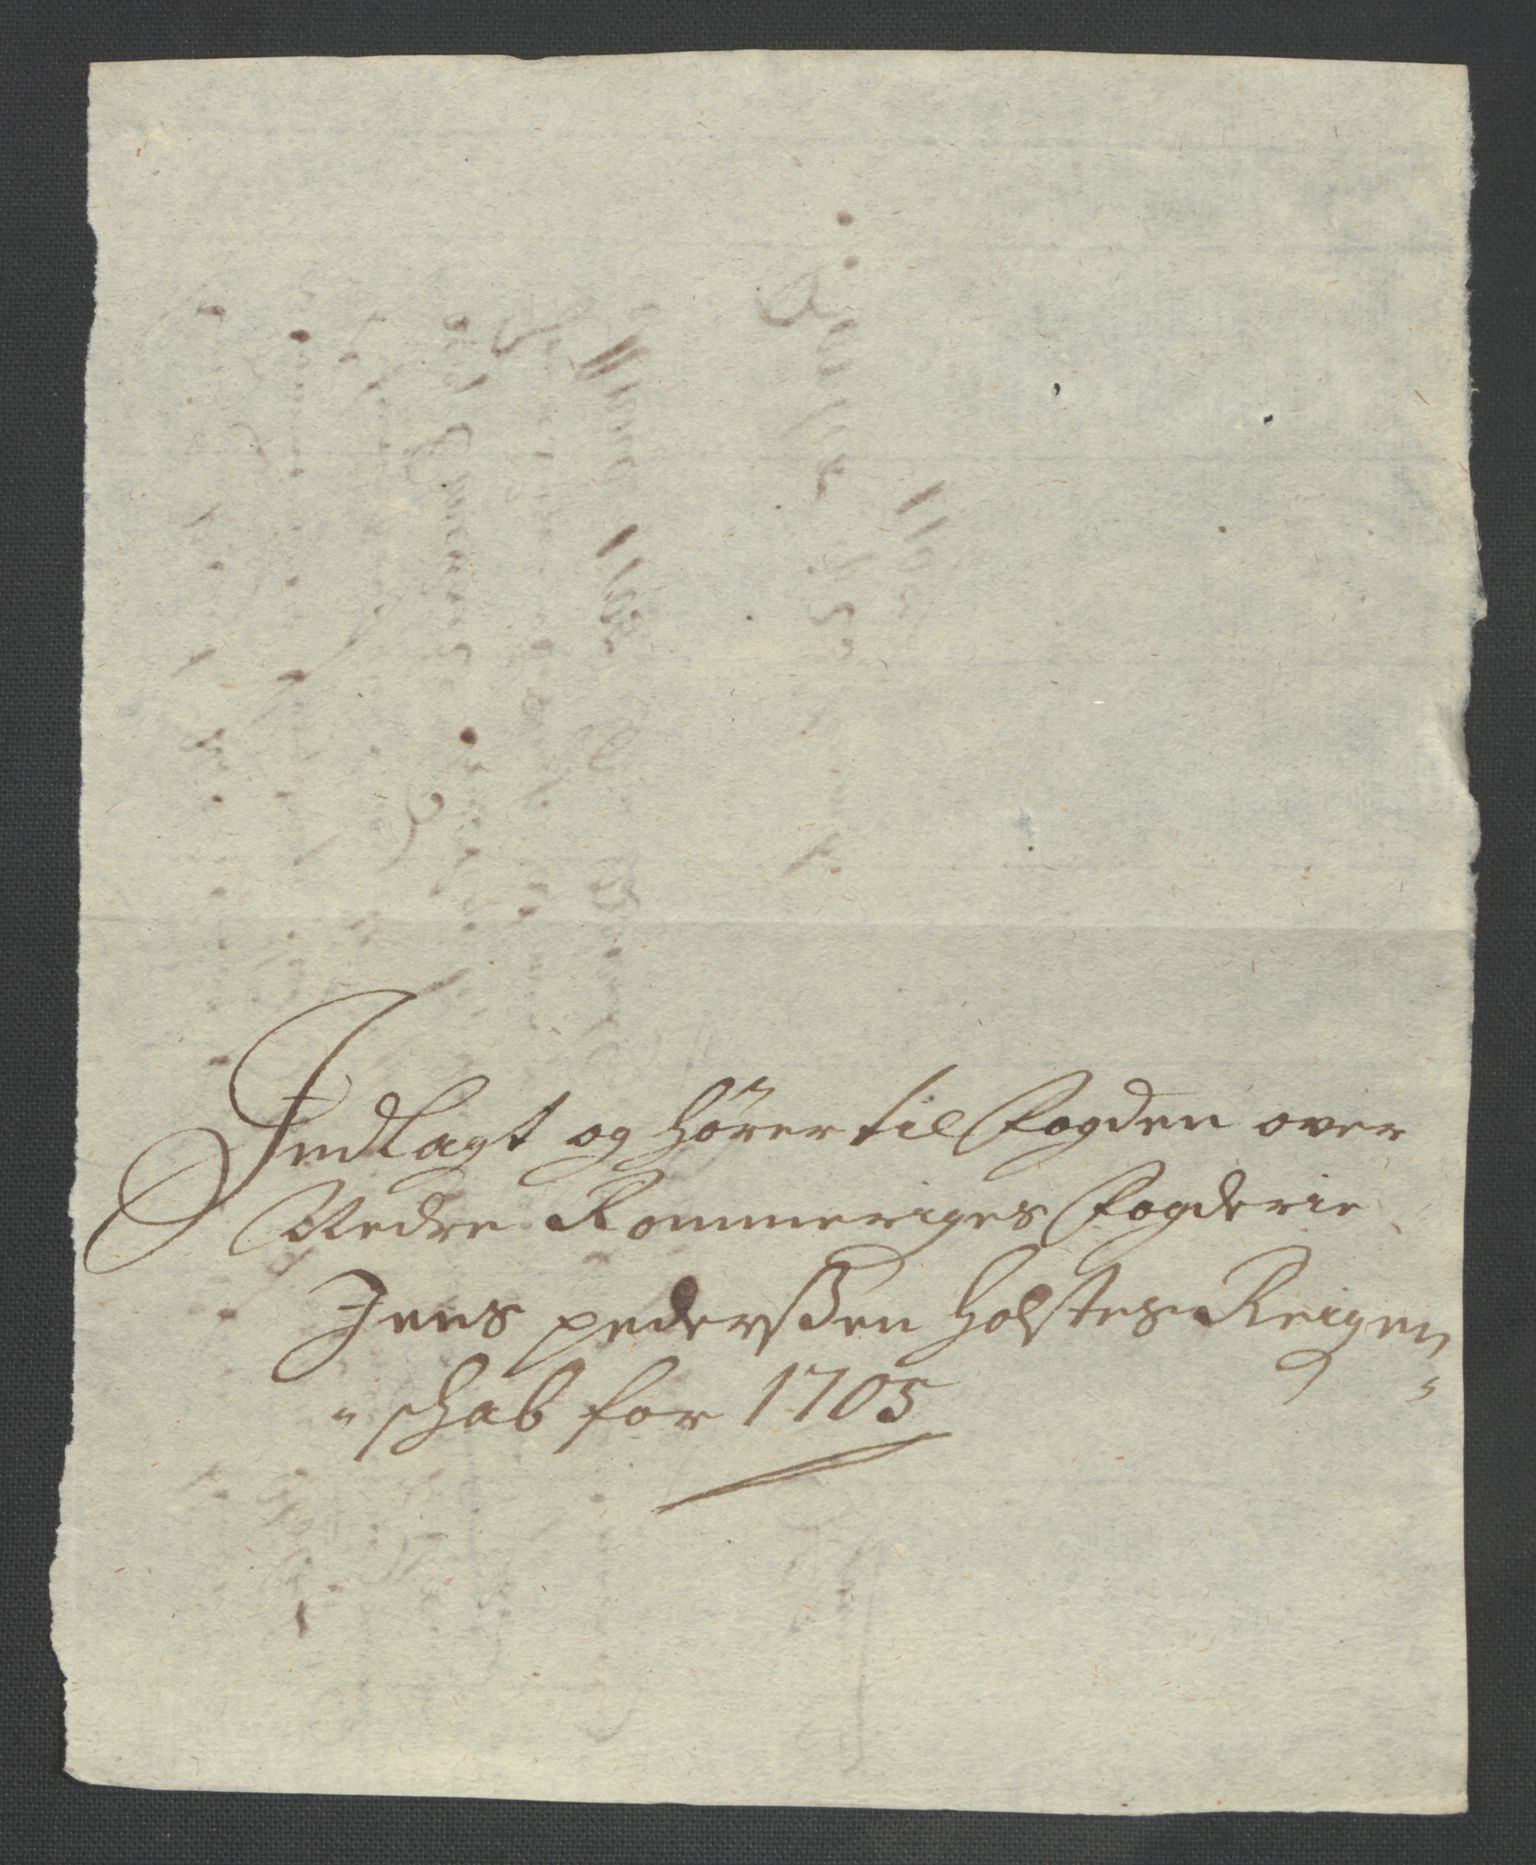 Indlagt og hører til Fogden over
Nedre Rommeriges Fogderie
Jens pederßen Holstes Reigen
schab for 1705